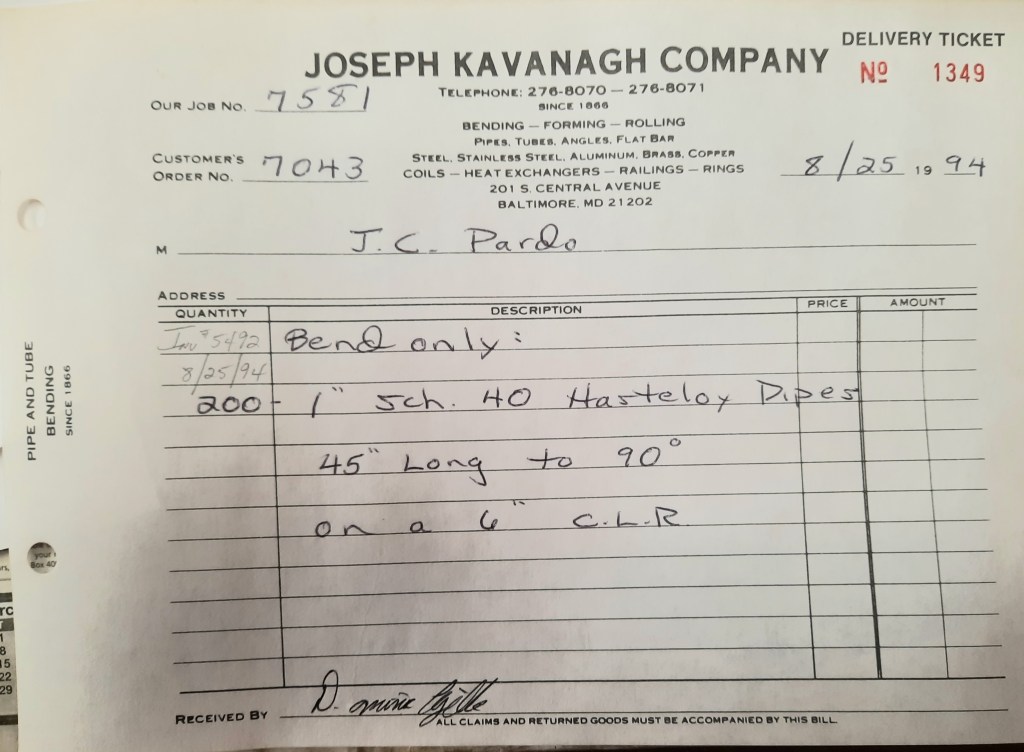 DELIVERY TICKET
JOSEPH KAVANAGH COMPANY
Nº 1349
TELEPHONE: 276-8070 — 276-8071
SINCE 1866
OUR JOB NO. 7581
BENDING — FORMING — ROLLING
PIPES, TUBES, ANGLES, FLAT BAR
STEEL, STAINLESS STEEL, ALUMINUM, BRASS, COPPER
COILS — HEAT EXCHANGERS — RAILINGS — RINGS
201 S. CENTRAL AVENUE
BALTIMORE, MD 21202
CUSTOMER'S
ORDER NO. 7043
8/25 19 94
M J.C. Pardo
ADDRESS
QUANTITY DESCRIPTION PRICE AMOUNT
Inv # 5492 Bend only:
8/25/94
200 - 1" Sch. 40 Hasteloy Pipes
45" Long to 90°
on a 6" C.L.R.
PIPE AND TUBE
BENDING
SINCE 1866
RECEIVED BY
ALL CLAIMS AND RETURNED GOODS MUST BE ACCOMPANIED BY THIS BILL.
your
Box 40
8
15
22
29